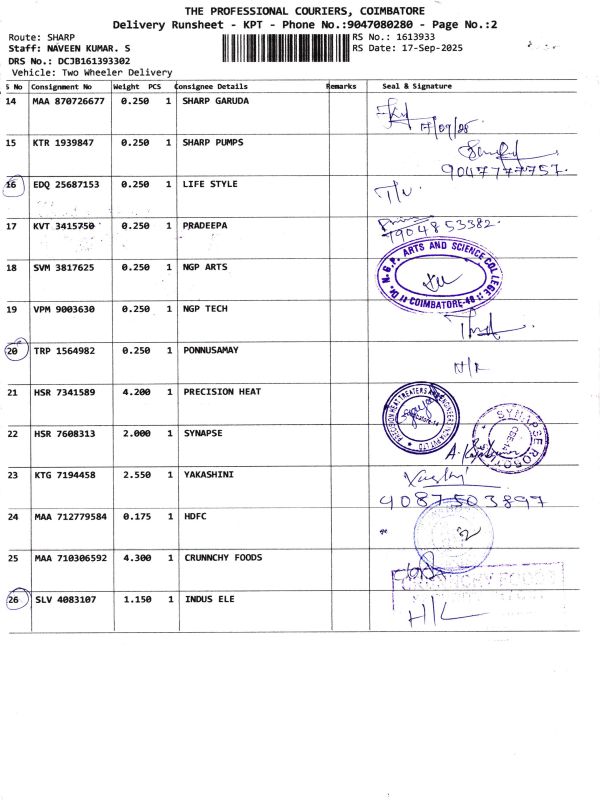 THE PROFESSIONAL COURIERS, COIMBATORE
Delivery Runsheet - KPT - Phone No.:9047080280 - Page No.:2
Route: SHARP RS No.: 1613933
Staff: NAVEEN KUMAR. S RS Date: 17-Sep-2025
DRS No.: DCJB161393302
Vehicle: Two Wheeler Delivery
S No Consignment No Weight PCS Consignee Details Remarks Seal & Signature
14 MAA 870726677 0.250 1 SHARP GARUDA
17/09/25
15 KTR 1939847 0.250 1 SHARP PUMPS
9047777757.
16 EDQ 25687153 0.250 1 LIFE STYLE
17 KVT 3415750 0.250 1 PRADEEPA
7904853382.
18 SVM 3817625 0.250 1 NGP ARTS
Dr. N.G.P. ARTS AND SCIENCE COLLEGE
COIMBATORE-48
19 VPM 9003630 0.250 1 NGP TECH
20 TRP 1564982 0.250 1 PONNUSAMAY
21 HSR 7341589 4.200 1 PRECISION HEAT
22 HSR 7608313 2.000 1 SYNAPSE
SYNAPSE
CBE-14
23 KTG 7194458 2.550 1 YAKASHINI
9087503897
24 MAA 712779584 0.175 1 HDFC
25 MAA 710306592 4.300 1 CRUNNCHY FOODS
26 SLV 4083107 1.150 1 INDUS ELE
H/L